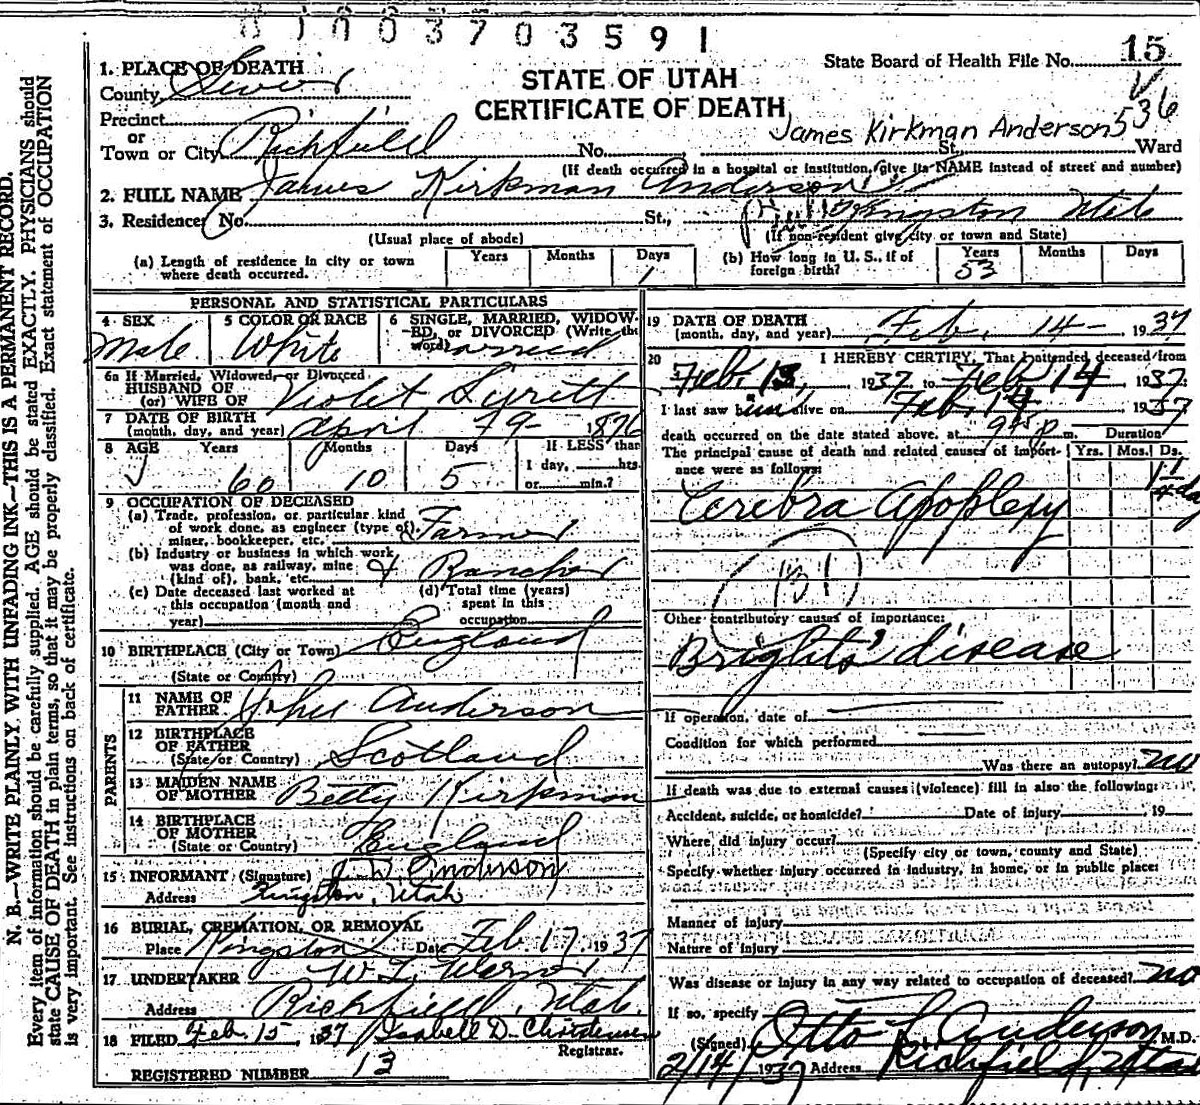 01003703591
State Board of Health File No. 15
STATE OF UTAH
CERTIFICATE OF DEATH
536
1. PLACE OF DEATH
County Sevier
Precinct
or
Town or City Richfield No. St. Ward
James Kirkman Anderson
(If death occurred in a hospital or institution, give its NAME instead of street and number)
2. FULL NAME James Kirkman Anderson
3. Residence: No. St., Kingston Utah
(Usual place of abode) (If non-resident give city or town and State)
(a) Length of residence in city or town where death occurred. Years Months Days 1
(b) How long in U. S., if of foreign birth? Years 53 Months Days
PERSONAL AND STATISTICAL PARTICULARS
4 SEX Male
5 COLOR OR RACE White
6 SINGLE, MARRIED, WIDOWED, or DIVORCED (Write the word) Married
6a If Married, Widowed, or Divorced
HUSBAND OF
(or) WIFE OF Violet Syrett
7 DATE OF BIRTH
(month, day, and year) April 9- 1876
8 AGE Years 60 Months 10 Days 5 If LESS than
1 day, hrs.
or min.?
9 OCCUPATION OF DECEASED
(a) Trade, profession, or particular kind
of work done, as engineer (type of),
miner, bookkeeper, etc. Farmer
(b) Industry or business in which work
was done, as railway, mine
(kind of), bank, etc. & Rancher
(c) Date deceased last worked at
this occupation (month and
year)
(d) Total time (years)
spent in this
occupation
10 BIRTHPLACE (City or Town) England
(State or Country)
PARENTS
11 NAME OF
FATHER John Anderson
12 BIRTHPLACE
OF FATHER
(State or Country) Scotland
13 MAIDEN NAME
OF MOTHER Betty Kirkman
14 BIRTHPLACE
OF MOTHER
(State or Country) England
15 INFORMANT (Signature) J. D. Anderson
Address Kingston, Utah
16 BURIAL, CREMATION, OR REMOVAL
Place Kingston Date Feb 17, 1937
17 UNDERTAKER W. L. Warner
Address Richfield, Utah
18 FILED Feb. 15, 1937 Isabell D. Christensen
Registrar.
REGISTERED NUMBER 13
19 DATE OF DEATH
(month, day, and year) Feb. 14- 1937
20 I HEREBY CERTIFY, That I attended deceased from
Feb. 13, 1937, to Feb 14 1937
I last saw him alive on Feb. 14 1937
death occurred on the date stated above, at p m. Duration
The principal cause of death and related causes of importance were as follows: Yrs. Mos. Ds.
Cerebra Apoplexy
Other contributory causes of importance:
Brights' disease
If operation, date of
Condition for which performed
Was there an autopsy? no
If death was due to external causes (violence) fill in also the following:
Accident, suicide, or homicide? Date of injury , 19
Where did injury occur?
(Specify city or town, county and State)
Specify whether injury occurred in industry, in home, or in public place:
Manner of injury
Nature of injury
Was disease or injury in any way related to occupation of deceased? no
If so, specify
(Signed) Otto L Anderson M.D.
2/14/ 1937 Address Richfield, Utah
N. B.—WRITE PLAINLY, WITH UNFADING INK—THIS IS A PERMANENT RECORD.
Every item of information should be carefully supplied. AGE should be stated EXACTLY. PHYSICIANS should
state CAUSE OF DEATH in plain terms, so that it may be properly classified. Exact statement of OCCUPATION
is very important. See instructions on back of certificate.